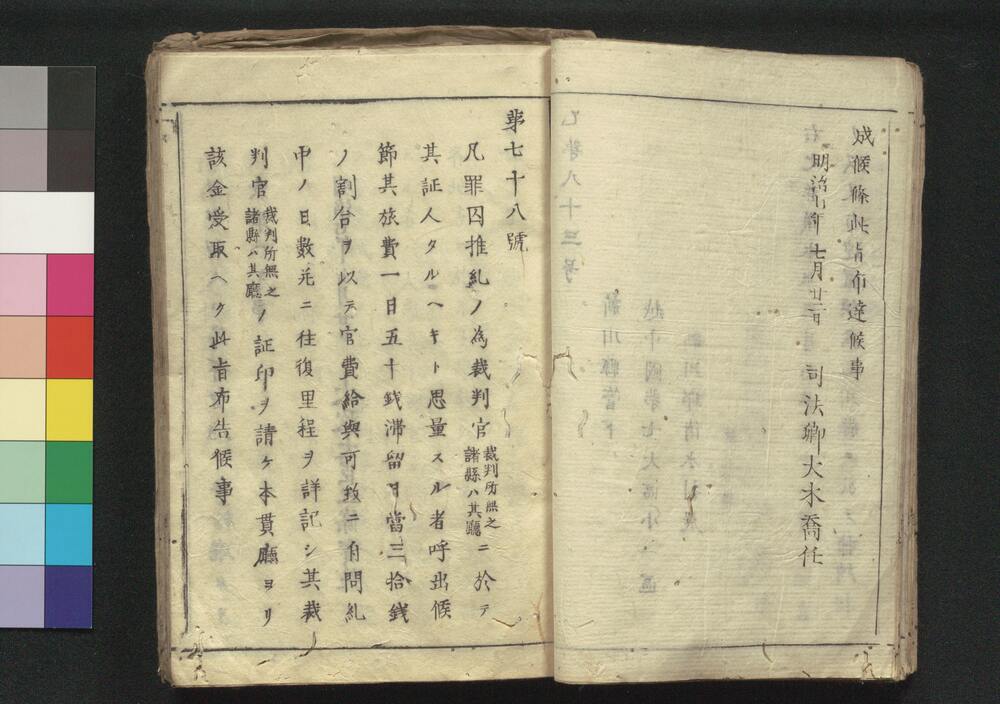 成候條此旨布達候事
明治七年七月廿二日 司法卿大木喬任
第七十八號
凡罪囚推糺ノ為裁判官裁判所無之諸縣ハ其廳ニ於テ
其証人タルヘキト思量スル者呼出候
節其旅費一日五十銭滞留日當三拾銭
ノ割合ヲ以テ官費給與可致ニ付問糺
中ノ日数并ニ往復里程ヲ詳記シ其裁
判官裁判所無之諸縣ハ其廳ノ証印ヲ請ケ本貫廳ヨリ
該金受取ヘク此旨布告候事